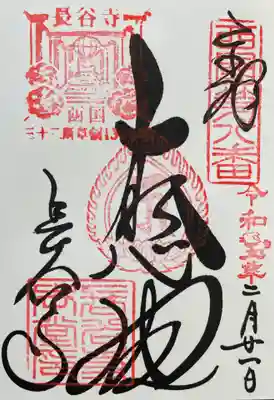 奉拝
西国第八番
令和
二月廿一日
大悲閣
長谷寺
長谷寺
西国
三十三所草創13